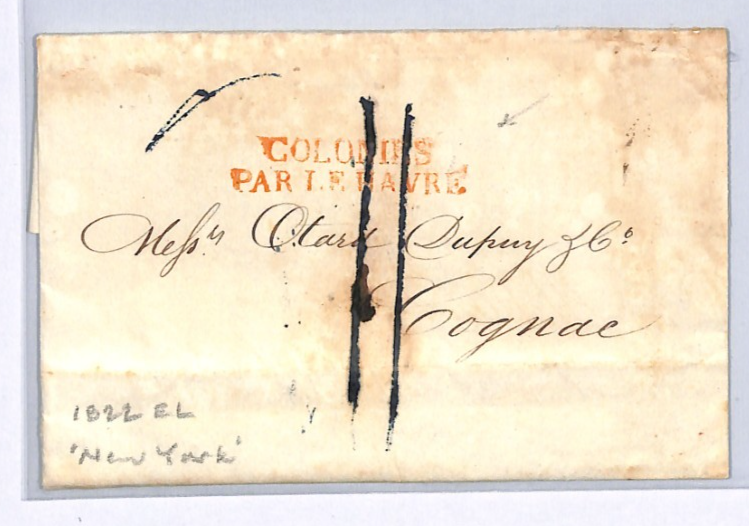 COLONIES
PAR LE HAVRE
Mess.rs Otard Dupuy & Co.
Cognac
1822 EL
'New York'